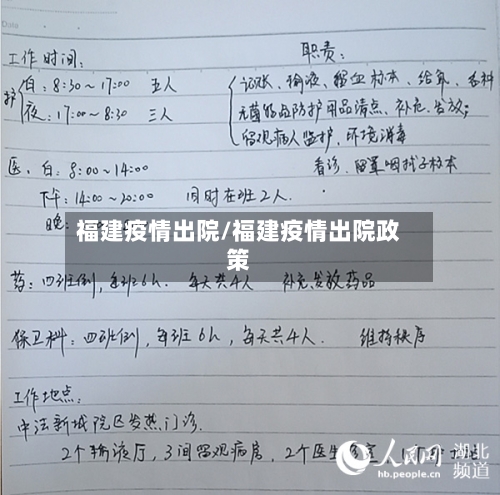 Date
工作时间：
职责：
护
白：8:30～17:00 五人
记账、输液、留血标本、给氧、各种
夜：17:00～8:30 三人
无菌物品防护用品清点、补充、发放；
留观病人监护、环境消毒
医、白：8:00～14:00
看诊、留置咽拭子标本
下午：14:00～20:00 同时在班2人.
晚：
福建疫情出院/福建疫情出院政
策
药：四班倒，每班6h. 每天共4人 补充发放药品
保卫科：四班倒，每班6h，每天共4人. 维持秩序
工作地点：
中法新城院区发热门诊.
2个输液厅，3间留观病房，2个医生
人民网 湖北
hb.people.com.cn 频道